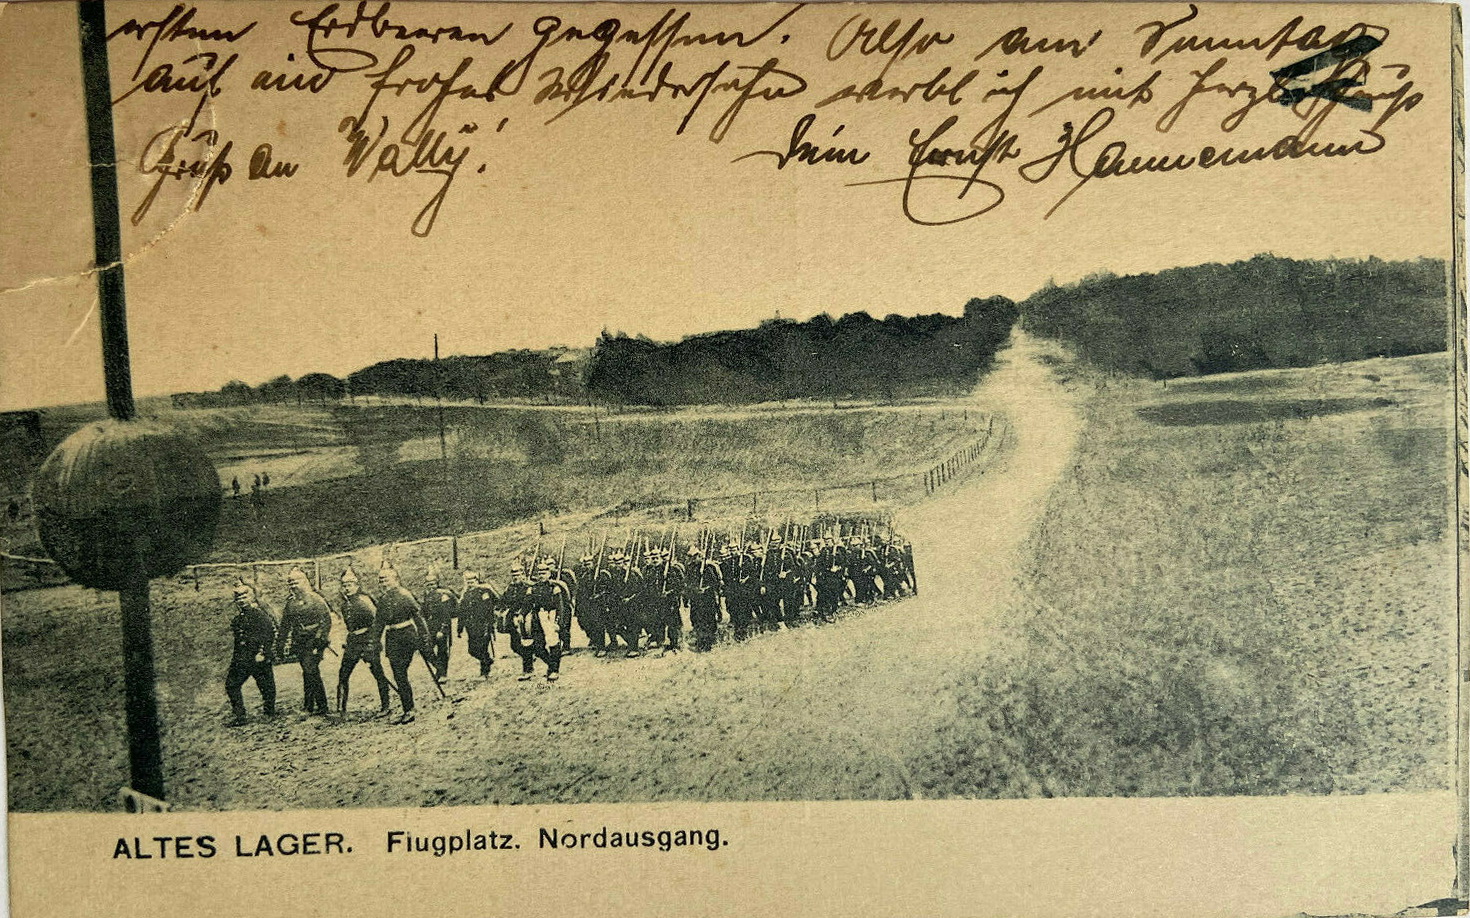 ersten Erdbeeren gegessen. Also am Sonntag
auf ein frohes Wiedersehn verbl. ich mit herzl. Gruß
Gruß an Wally! Dein Ernst Hannemann
ALTES LAGER. Flugplatz. Nordausgang.